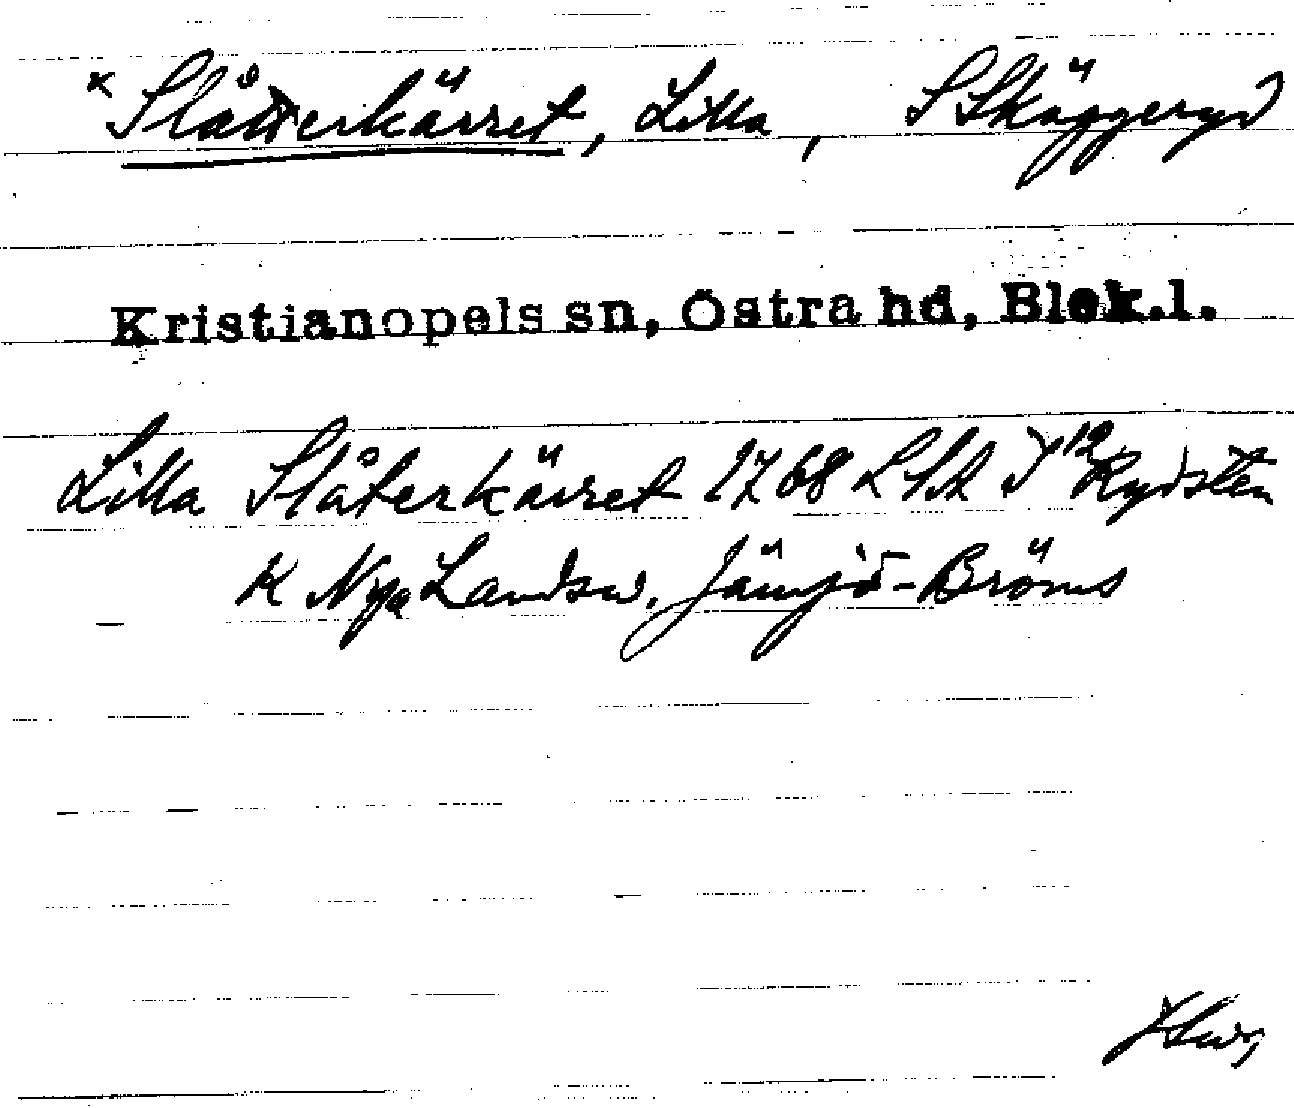 x Slåtterkärret, Lilla, S Skäggeryd
Kristianopels sn, Östra hd, Blek.l.
Lilla Slåterkärret 1768 LSA J12 Rydsten
K Nya Landsv. Jämjö-Bröms